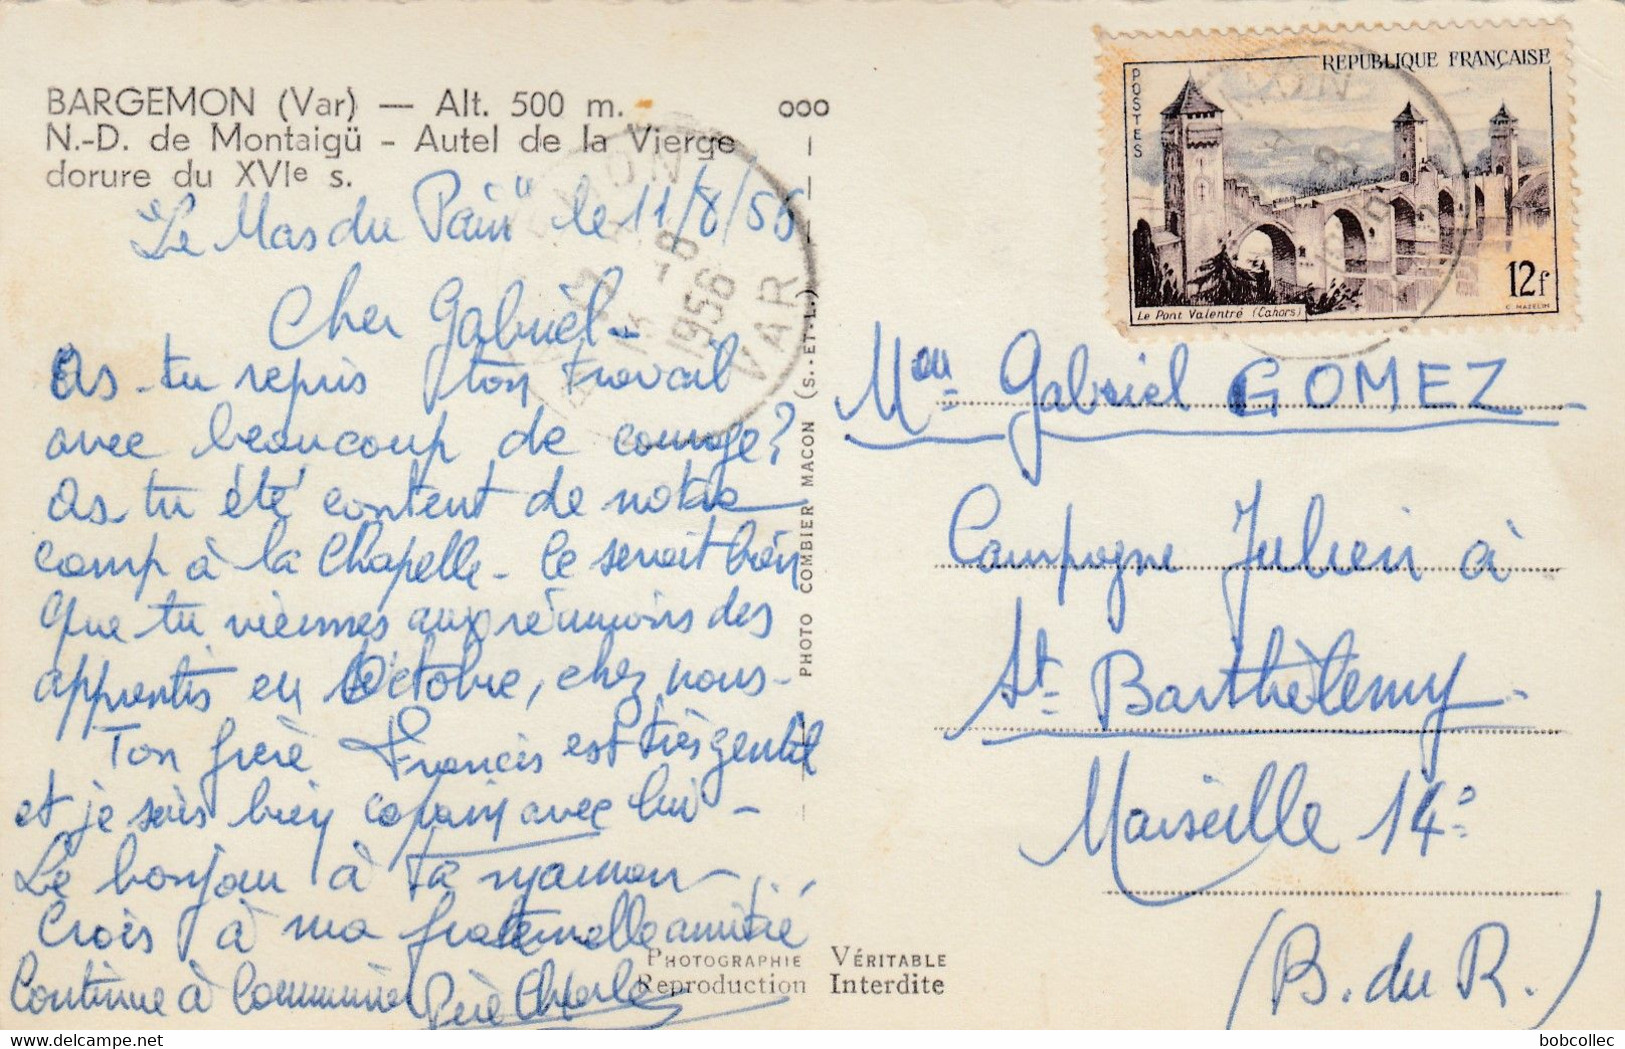 BARGEMON (Var) — Alt. 500 m.
N.-D. de Montaigü - Autel de la Vierge
dorure du XVIe s.
ooo
"Le Mas du Pain" le 11/8/56
Cher Gabriel -
As-tu repris ton travail
avec beaucoup de courage?
As-tu été content de notre
camp à la Chapelle - Ce serait bien
que tu viennes aux réunions des
apprentis en Octobre, chez nous -
Ton frère Francis est très gentil
et je suis bien copain avec lui -
Le bonjour à ta maman -
Crois à ma fraternelle amitié
Continue à Communier Père Charles
PHOTO COMBIER MACON (S.-ET-L.)
PHOTOGRAPHIE VÉRITABLE
Reproduction Interdite
REPUBLIQUE FRANÇAISE
POSTES
12f
Le Pont Valentré (Cahors)
C. MAZELIN
8
1956
VAR
Gabriel GOMEZ
Campagne Julien à
St Barthèlemy -
Marseille 14e
(B. du R.)
bobcollec